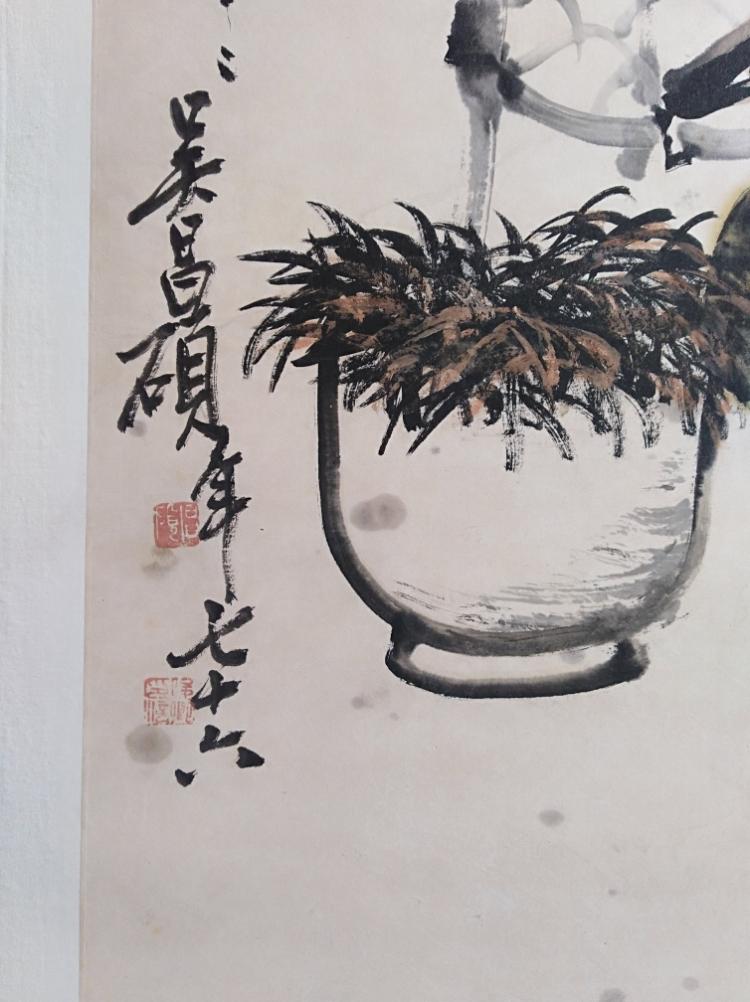 吴昌硕年七十六